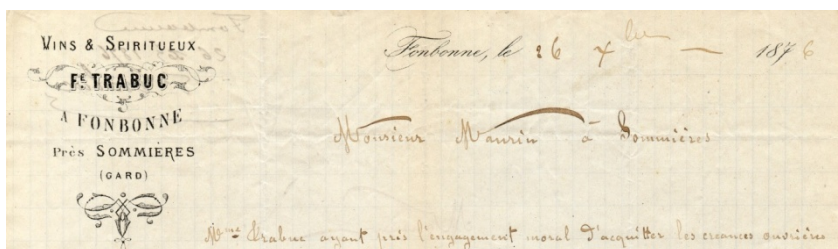 VINS & SPIRITUEUX
Fs. TRABUC
A FONBONNE
Près SOMMIÈRES
(GARD)
Fonbonne, le 26 Xbre — 1876
Monsieur Maurin à Sommières
Mme Trabuc ayant pris l'engagement moral d'acquitter les créances ouvrières